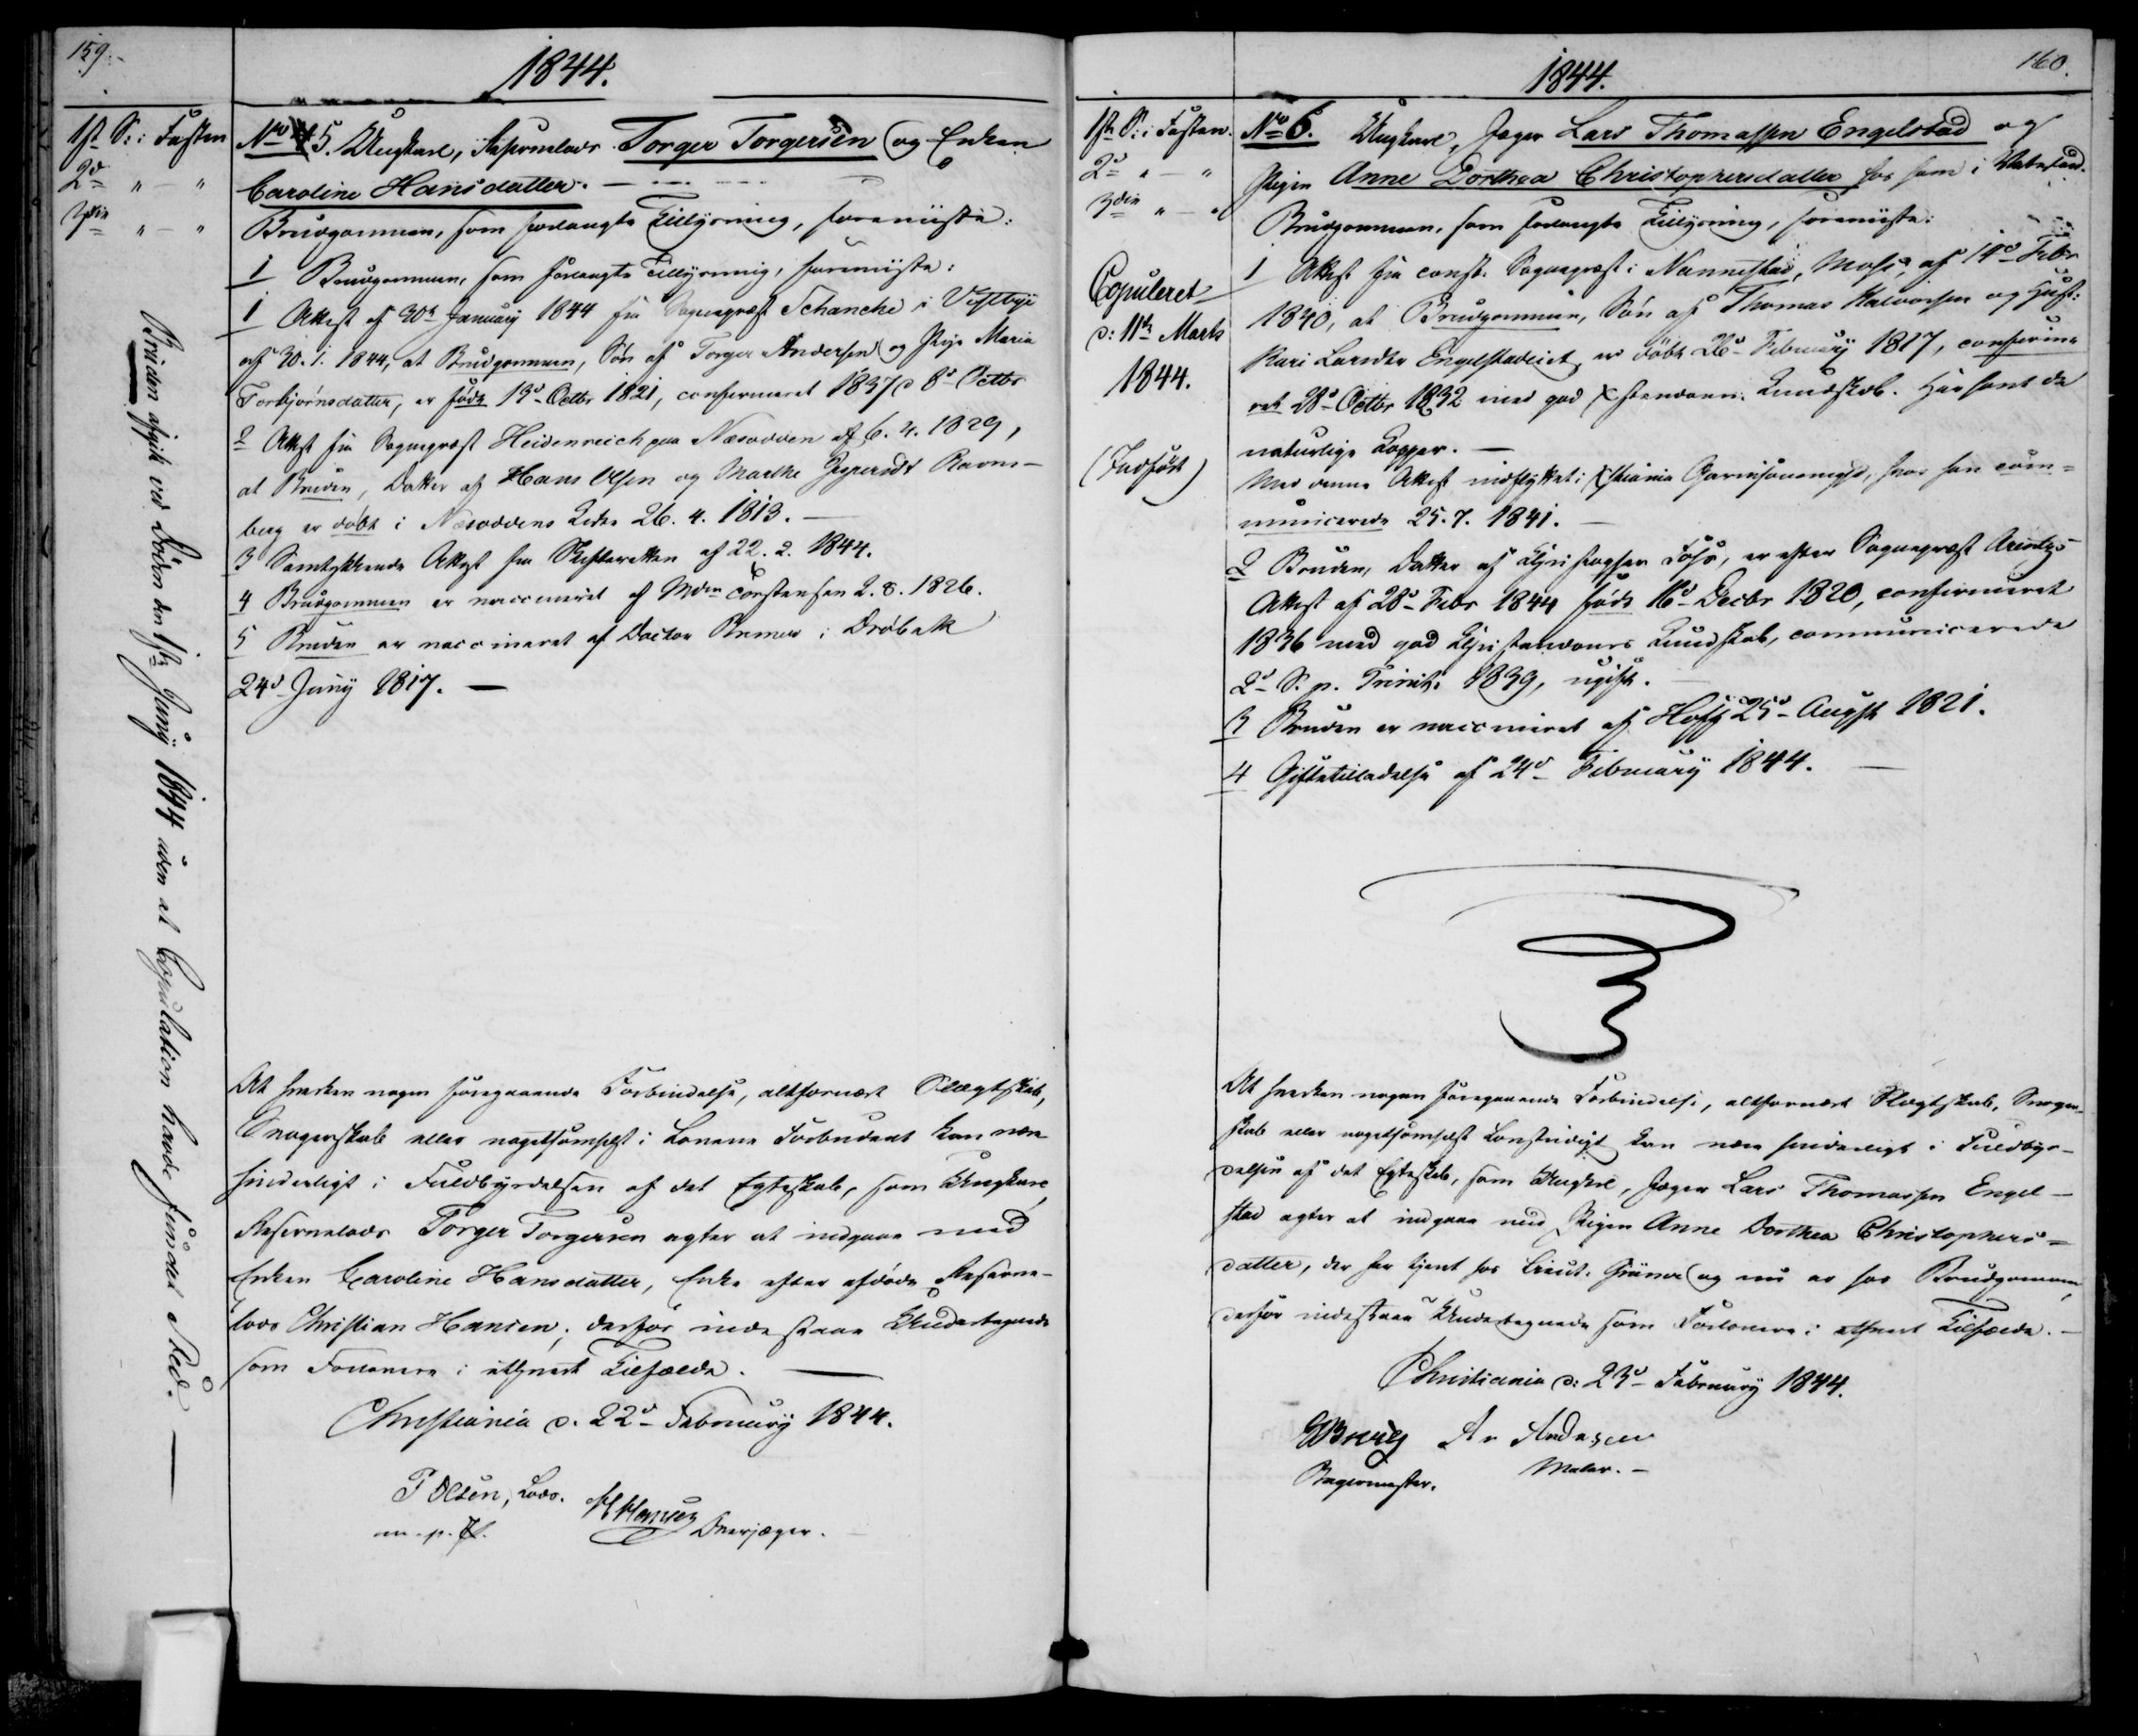 159.
1844.
1ste S. i Fasten
2d " — "
3die " — "
No 5. Ungkarl, Reservelods Torger Torgersen og Enken
Caroline Hansdatter. —
Brudgommen, som forlangte Tillysning, foreviiste:
1 Brudgommen, som forlangte Tillysning, foreviiste:
1 Attest af 30te January 1844 fra Sognepræst Schanche i Vestbye
af 30. 1. 1844, at Brudgommen, Søn af Torger Andersen og Pige Maria
Torbjørnsdatter, er født 13d Octbr 1821, confirmeret 1837 d 8d Octbr
2 Attest fra Sognepræst Heidenreich paa Næsodden af 6. 4. 1829,
at Bruden, Datter af Hans Olsen og Marthe Ravns-
berg er døbt i Næsoddens Kirke 26. 4. 1813. —
3 Samtykkende Attest fra Skifteretten af 22. 2. 1844.
4 Brudgommen er vaccineret af Torstensen 2. 8. 1826.
5 Bruden er vaccineret af Doctor i Drøbak
24d Juny 1817. —
Bruden afgik ved Døden den 1ste Juny 1844 uden at Copulation havde fundet Sted. —
At hverken nogen foregaaende Forbindelse, altfornært Slægtskab,
Svogerskab eller nogetsomhelst i Lovene Forbudent kan være
hinderligt i Fuldbyrdelsen af det Egteskab, som Ungkarl,
Reservelods Torger Torgersen agter at indgaae med
Enken Caroline Hansdatter, Enke efter afdøde Reserve-
lods Christian Hansen, derfor indestaae Undertegnede
som Forlovere i ethvert Tilfælde. —
Christiania d. 22d February 1844.
P Olsen, Lods.
m. p. P.
H Hansen Overjæger.
160.
1844.
1ste S. i Fasten.
2d " — "
3die " — "
Copuleret
d: 11te Marts
1844.
(Indført)
No 6. Ungkarl, Jæger Lars Thomassen Engelstad og
Pigen Anne Dorthea Christophersdatter
Brudgommen, som forlangte Tillysning, foreviiste:
1 Attest fra const. Sognepræst i Nannestad, af 14d Febr
1840, at Brudgommen, Søn af Thomas Halvorsen og Hust:
Kari Larsdtr Engelstadeiet, er døbt 26d February 1817, confirme-
ret 28d Octbr 1832 med god Xstendoms Kundskab. Har havt de
naturlige Kopper. —
Med denne Attest indflyttet i Xstiania Garnisonsmgd, hvor han com-
municerede 25. 7. 1841. —
2 Bruden, Datter af Christopher Foss, er efter Sognepræst Arentz's
Attest af 28d Febr 1844 født 16d Decbr 1820, confirmeret
1836 med god Christendoms Kundskab, communicerede
2d S. p. Trinit. 1839, ugift. —
3 Bruden er vaccineret af Hoff 25d August 1821.
4 Giftetilladelse af 24d February 1844. —
At hverken nogen foregaaende Forbindelse, altfornært Slægtskab, Svoger-
skab eller nogetsomhelst Lovstridigt kan være hinderligt i Fuldbyr-
delsen af det Egteskab, som Ungkarl, Jæger Lars Thomassen Engel-
stad agter at indgaae med Pigen Anne Dorthea Christophers-
datter, der har tjent hos Lieut. Grüner og nu er hos Brudgommen,
derfor indestaae Undertegnede som Forlovere i ethvert Tilfælde. —
Christiania d: 23d February 1844.
Andersen
Bagermester. Maler. —